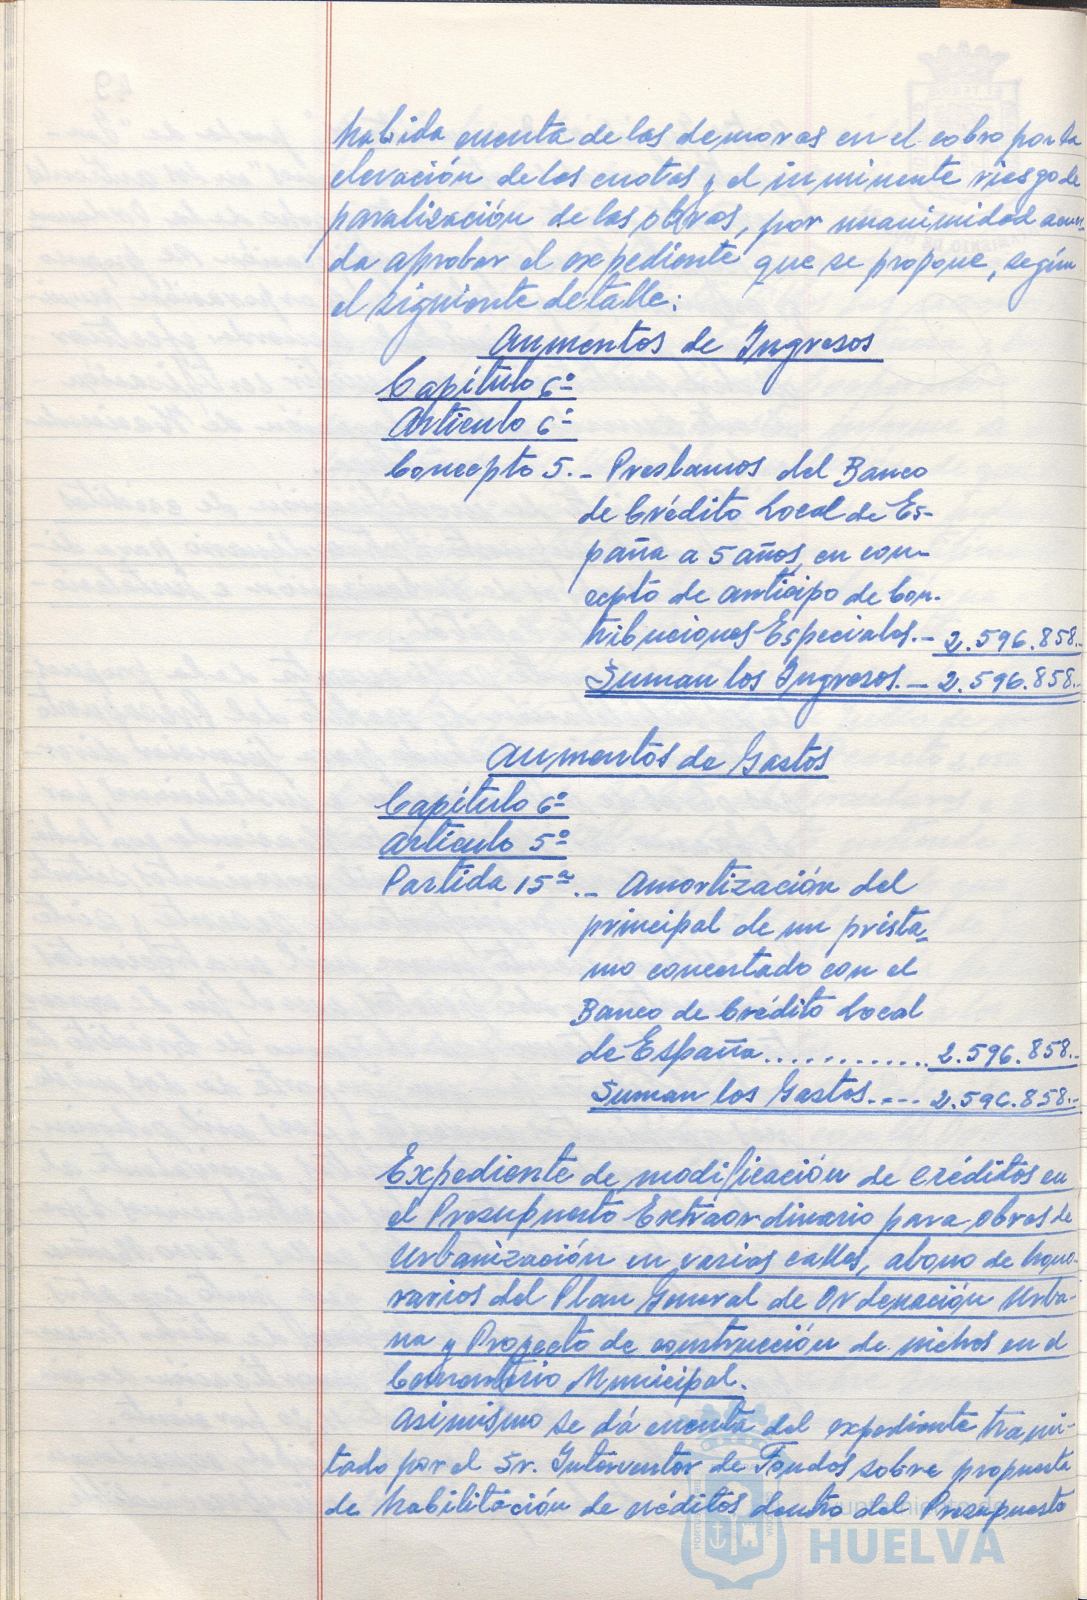 habida cuenta de las demoras en el cobro por la
elevación de las cuotas y el inminente riesgo de
paralización de las obras, por unanimidad acuer-
da aprobar el expediente que se propone, según
el siguiente detalle:
Aumentos de Ingresos
Capítulo 6º
Artículo 6º
Concepto 5.- Prestamos del Banco
de Crédito Local de Es-
paña a 5 años, en con-
cepto de anticipo de Con-
tribuciones Especiales.- 2.596.858.-
Suman los Ingresos.- 2.596.858.-
Aumentos de Gastos
Capítulo 6º
Artículo 5º
Partida 15ª.- Amortización del
principal de un présta-
mo concertado con el
Banco de Crédito Local
de España............ 2.596.858.-
Suman los Gastos.... 2.596.858.-
Expediente de modificación de créditos en
el Presupuesto Extraordinario para obras de
Urbanización en varias calles, abono de hono-
rarios del Plan General de Ordenación Urba-
na y Proyecto de construcción de nichos en el
Cementerio Municipal.
Asimismo se dá cuenta del expediente trami-
tado por el Sr. Interventor de Fondos sobre propuesta
de habilitación de créditos dentro del Presupuesto
HUELVA